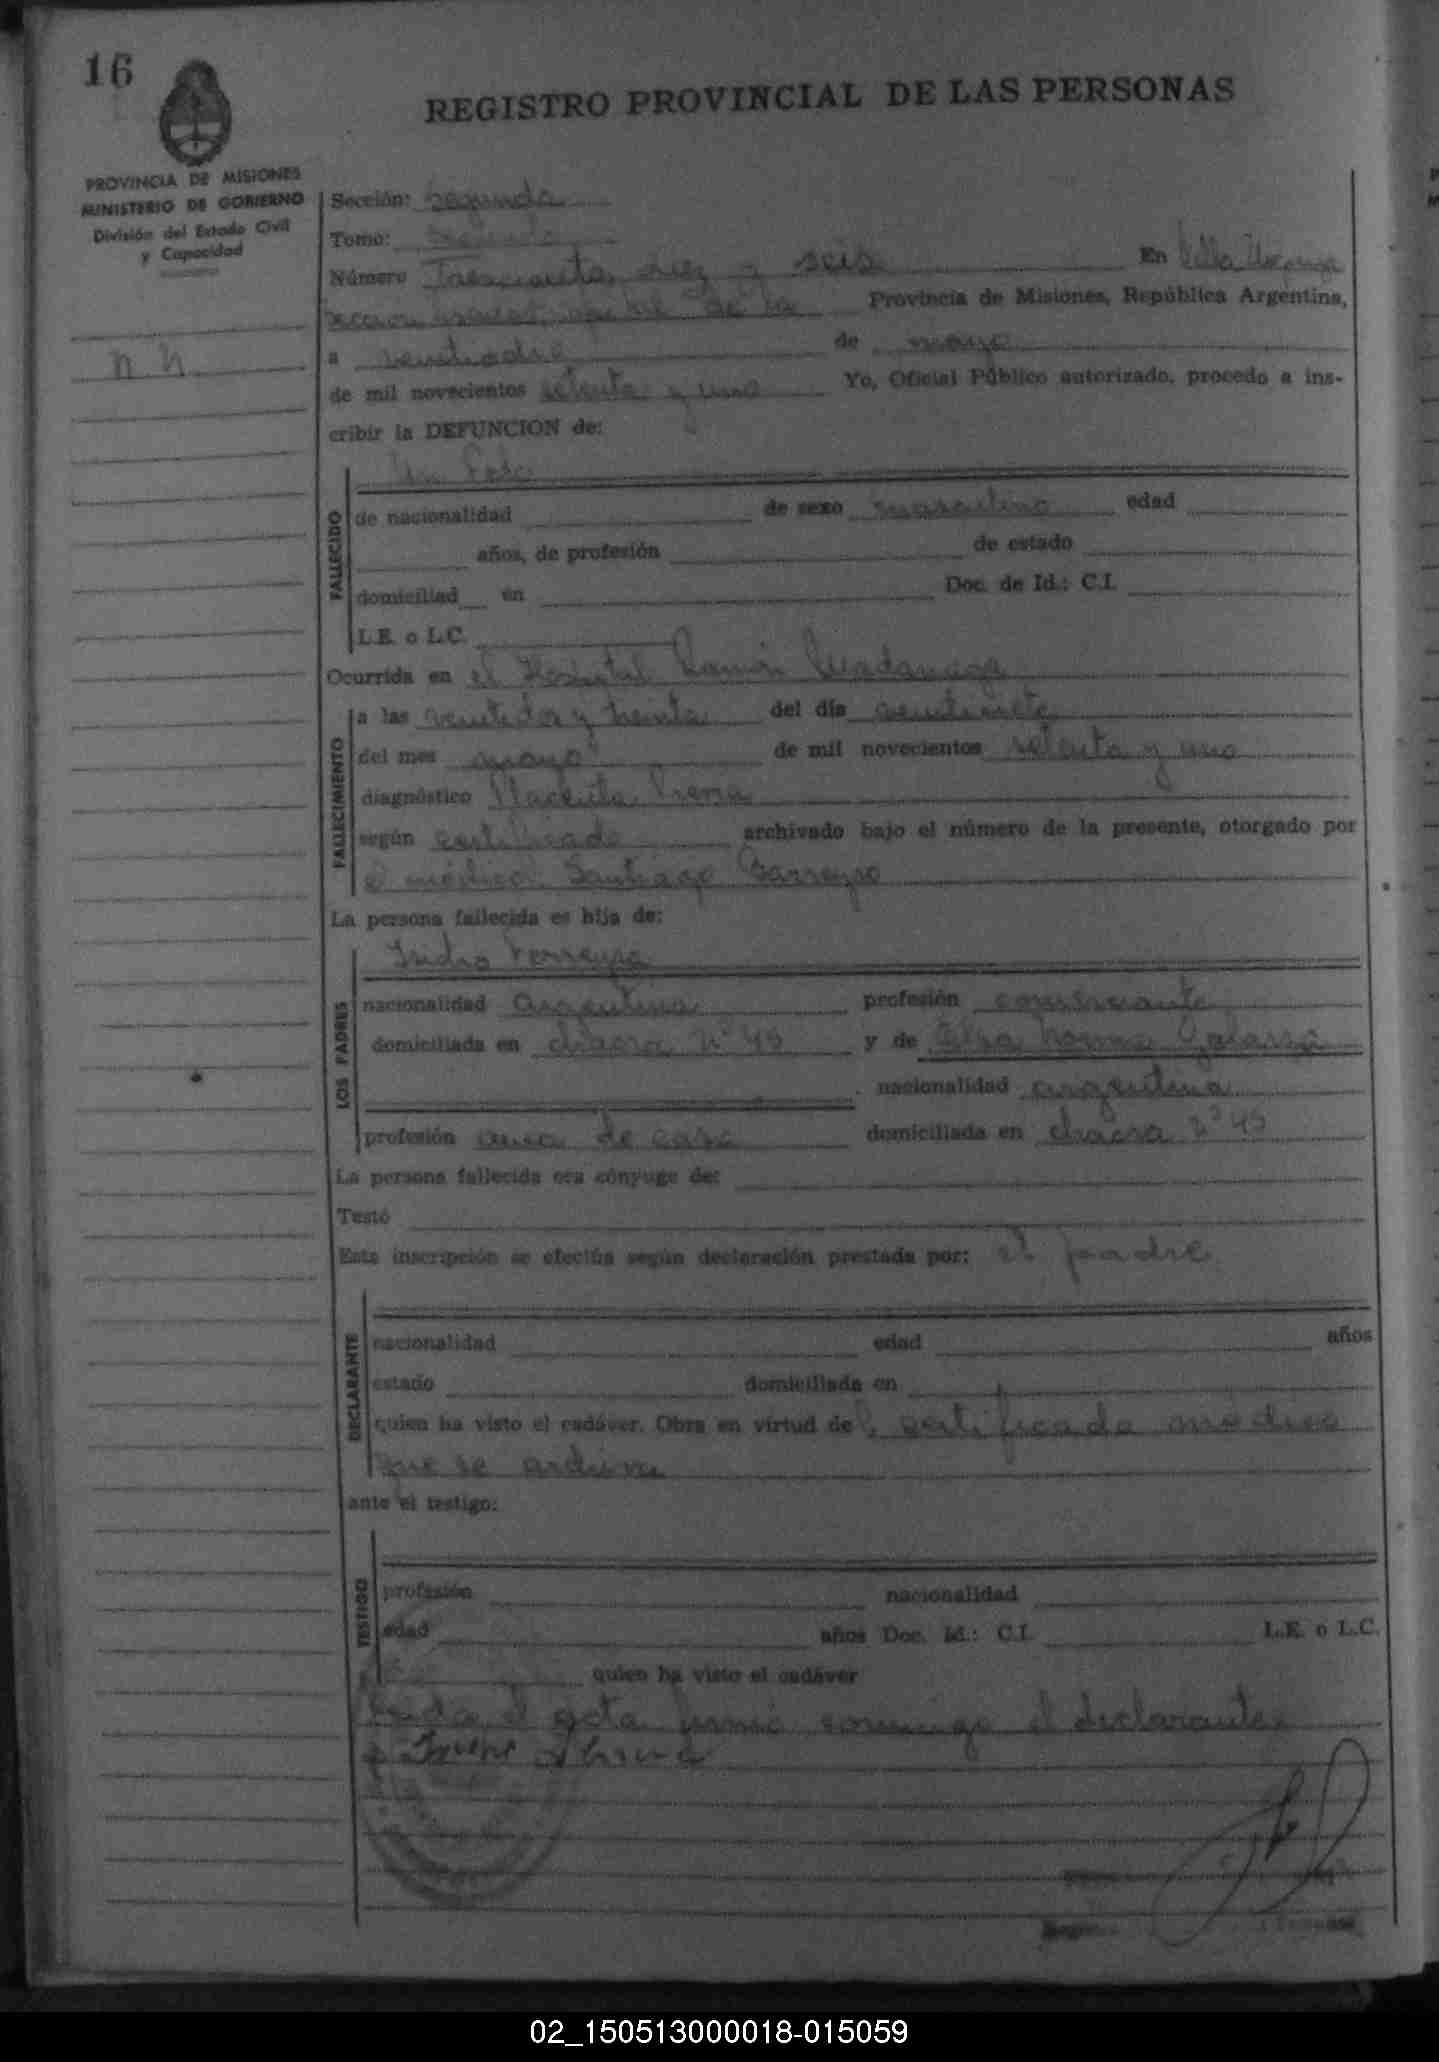 16
REGISTRO PROVINCIAL DE LAS PERSONAS
PROVINCIA DE MISIONES
MINISTERIO DE GOBIERNO
División del Estado Civil
y Capacidad
n. n.
Sección: Segunda
Tomo:
Número Trescientos diez y seis En Villa Urquiza
de la Provincia de Misiones, República Argentina,
a de mayo
de mil novecientos setenta y uno Yo, Oficial Público autorizado, procedo a ins-
cribir la DEFUNCION de:
Un Feto
FALLECIDO
de nacionalidad de sexo masculino edad
años, de profesión de estado
domiciliad en Doc. de Id.: C.I.
L.E. o L.C.
Ocurrida en el Hospital Ramón Madariaga
FALLECIMIENTO
a las veintidos y treinta del día
del mes mayo de mil novecientos setenta y uno
diagnóstico Placenta Previa
según certificado archivado bajo el número de la presente, otorgado por
el médico Santiago Barreyro
La persona fallecida es hija de:
LOS PADRES
Isidro Ferreyra
nacionalidad argentina profesión comerciante
domiciliada en chacra nº 45 y de Elsa Norma
nacionalidad argentina
profesión ama de casa domiciliada en chacra nº 45
La persona fallecida era cónyuge de:
Testó
Esta inscripción se efectúa según declaración prestada por: el padre
DECLARANTE
nacionalidad edad años
estado domiciliada en
quien ha visto el cadáver. Obra en virtud del certificado médico
que se archiva
ante el testigo:
TESTIGO
profesión nacionalidad
edad años Doc. Id.: C.I. L.E. o L.C.
quien ha visto el cadáver
Leida el acta firmó conmigo el declarante.
02_150513000018-015059